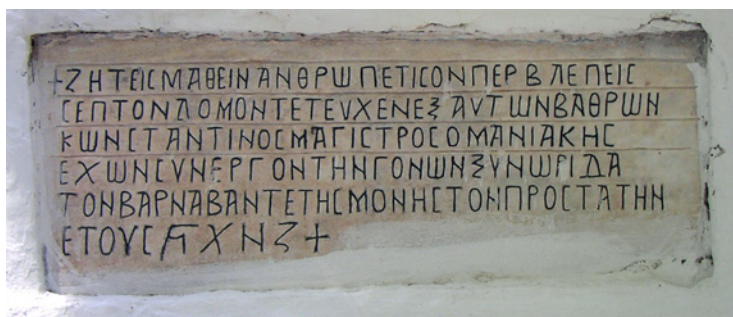 +ΖΗΤΕΙCΜΑΘΕΙΝΑΝΘΡШΠΕΤΙCΟΝΠΕΡΒΛΕΠΕΙC
CΕΠΤΟΝΔΟΜΟΝΤΕΤΕVΧΕΝΕΞΑVΤШΝΒΑΘΡШΝ
ΚШΝCΤΑΝΤΙΝΟCΜΑΓΙCΤΡΟCΟΜΑΝΙΑΚΗC
ΕΧШΝCVΝΕΡΓΟΝΤΗΝΓΟΝШΝΞVΝШΡΙΔΑ
ΤΟΝΒΑΡΝΑΒΑΝΤΕΤΗCΜΟΝΗCΤΟΝΠΡΟCΤΑΤΗΝ
ΕΤΟVC͵ϚΧΝΖ+